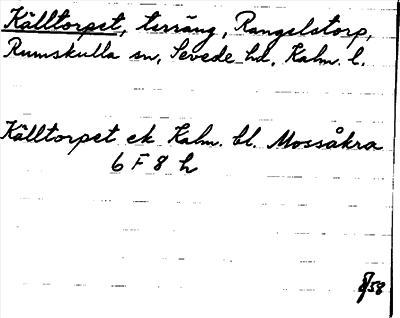 Källtorpet, terräng, Rangelstorp,
Rumskulla sn, Sevede hd, Kalm. l.
Källtorpet ek Kalm. bl. Mossåkra
6 F 8 h
58